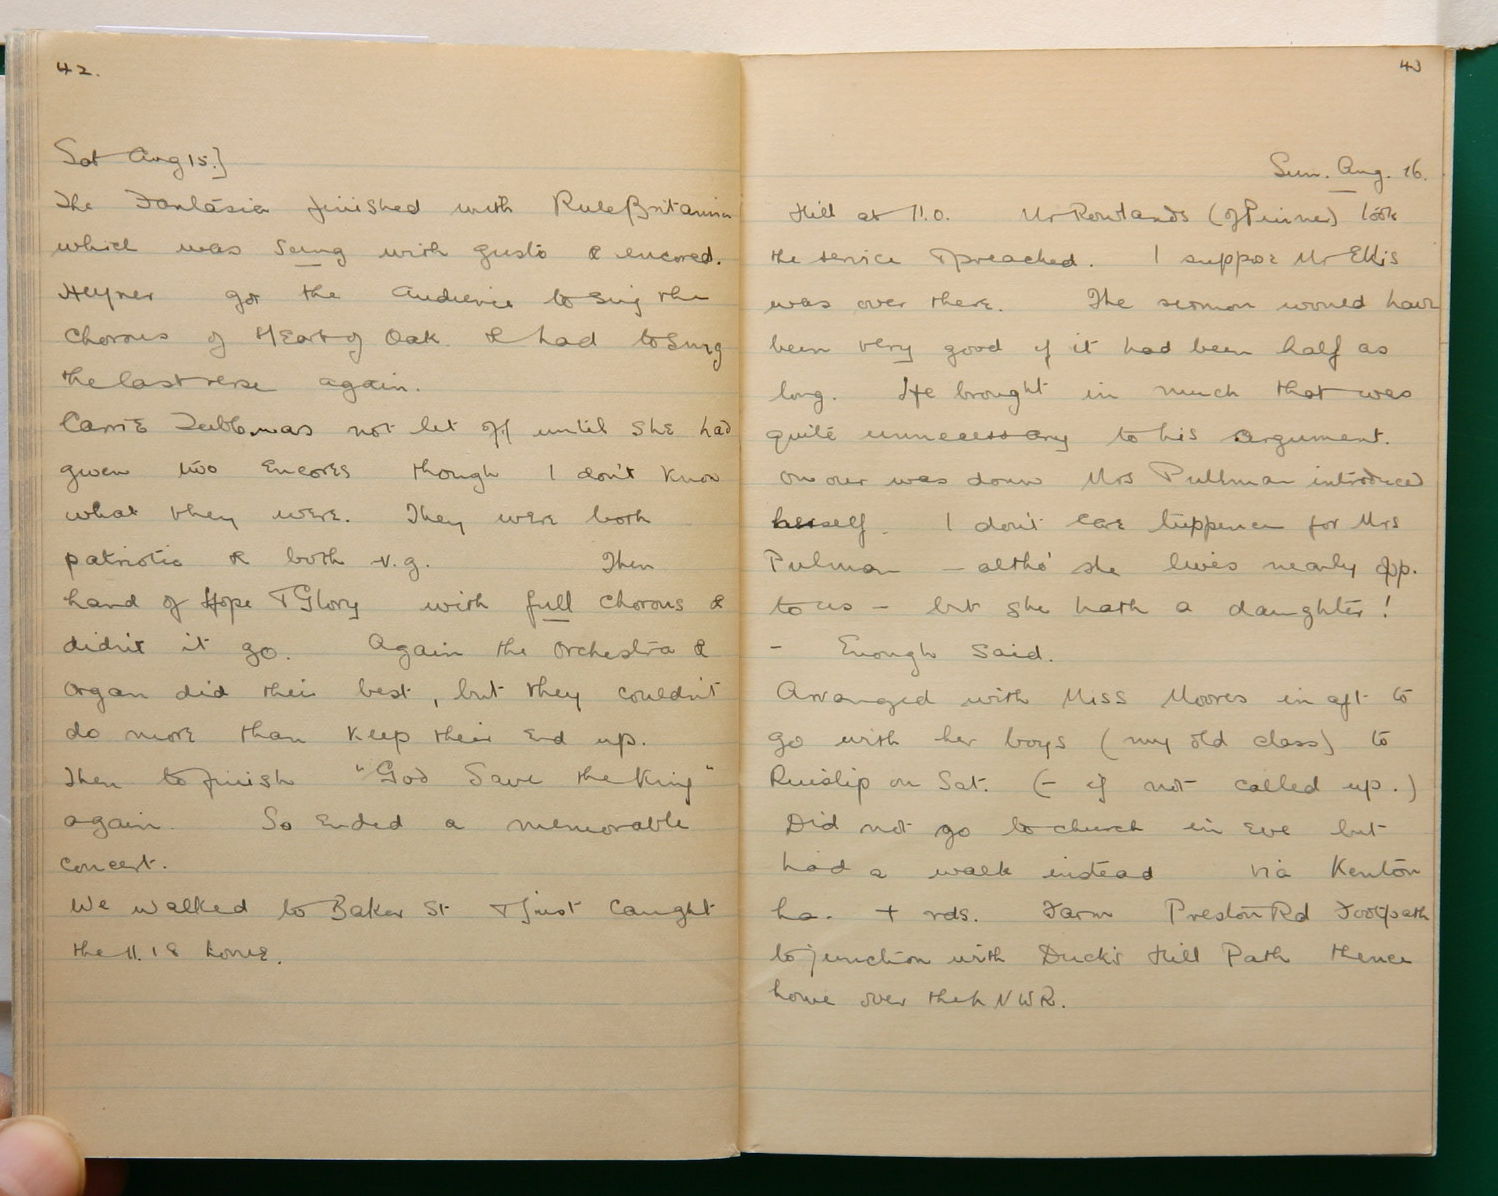 42.
Sat Aug 15.]
The Fantasia finished with Rule Britannia
which was sung with gusto & encored.
Heyner got the audience to sing the
chorus of Heart of Oak & had to sing
the last verse again.
Carrie Tubb was not let off until she had
given two encores though I don't know
what they were. They were both
patriotic & both v.g. Then
Land of Hope & Glory with full chorus &
didn't it go. Again the orchestra &
organ did their best, but they couldn't
do more than keep their end up.
Then to finish "God Save the King"
again. So ended a memorable
concert.
We walked to Baker St & just caught
the 11.18 home.
43
Sun. Aug. 16.
Hill at 11.0. Mr Rowlands (of Pinner) took
the service & preached. I suppose Mr Ellis
was over there. The sermon would have
been very good if it had been half as
long. He brought in much that was
quite unnecessary to his argument.
On our was down Mrs Pullman introduced
herself. I don't care tuppence for Mrs
Pulman – altho' she lives nearly opp.
to us – but she hath a daughter!
– Enough said.
Arranged with Miss Moores in aft to
go with her boys (my old class) to
Ruislip on Sat. (– if not called up.)
Did not go to church in eve but
had a walk instead via Kenton
la. + rds. Farm Preston Rd Footpath
to junction with Duck's Hill Path thence
home over the LNWR.